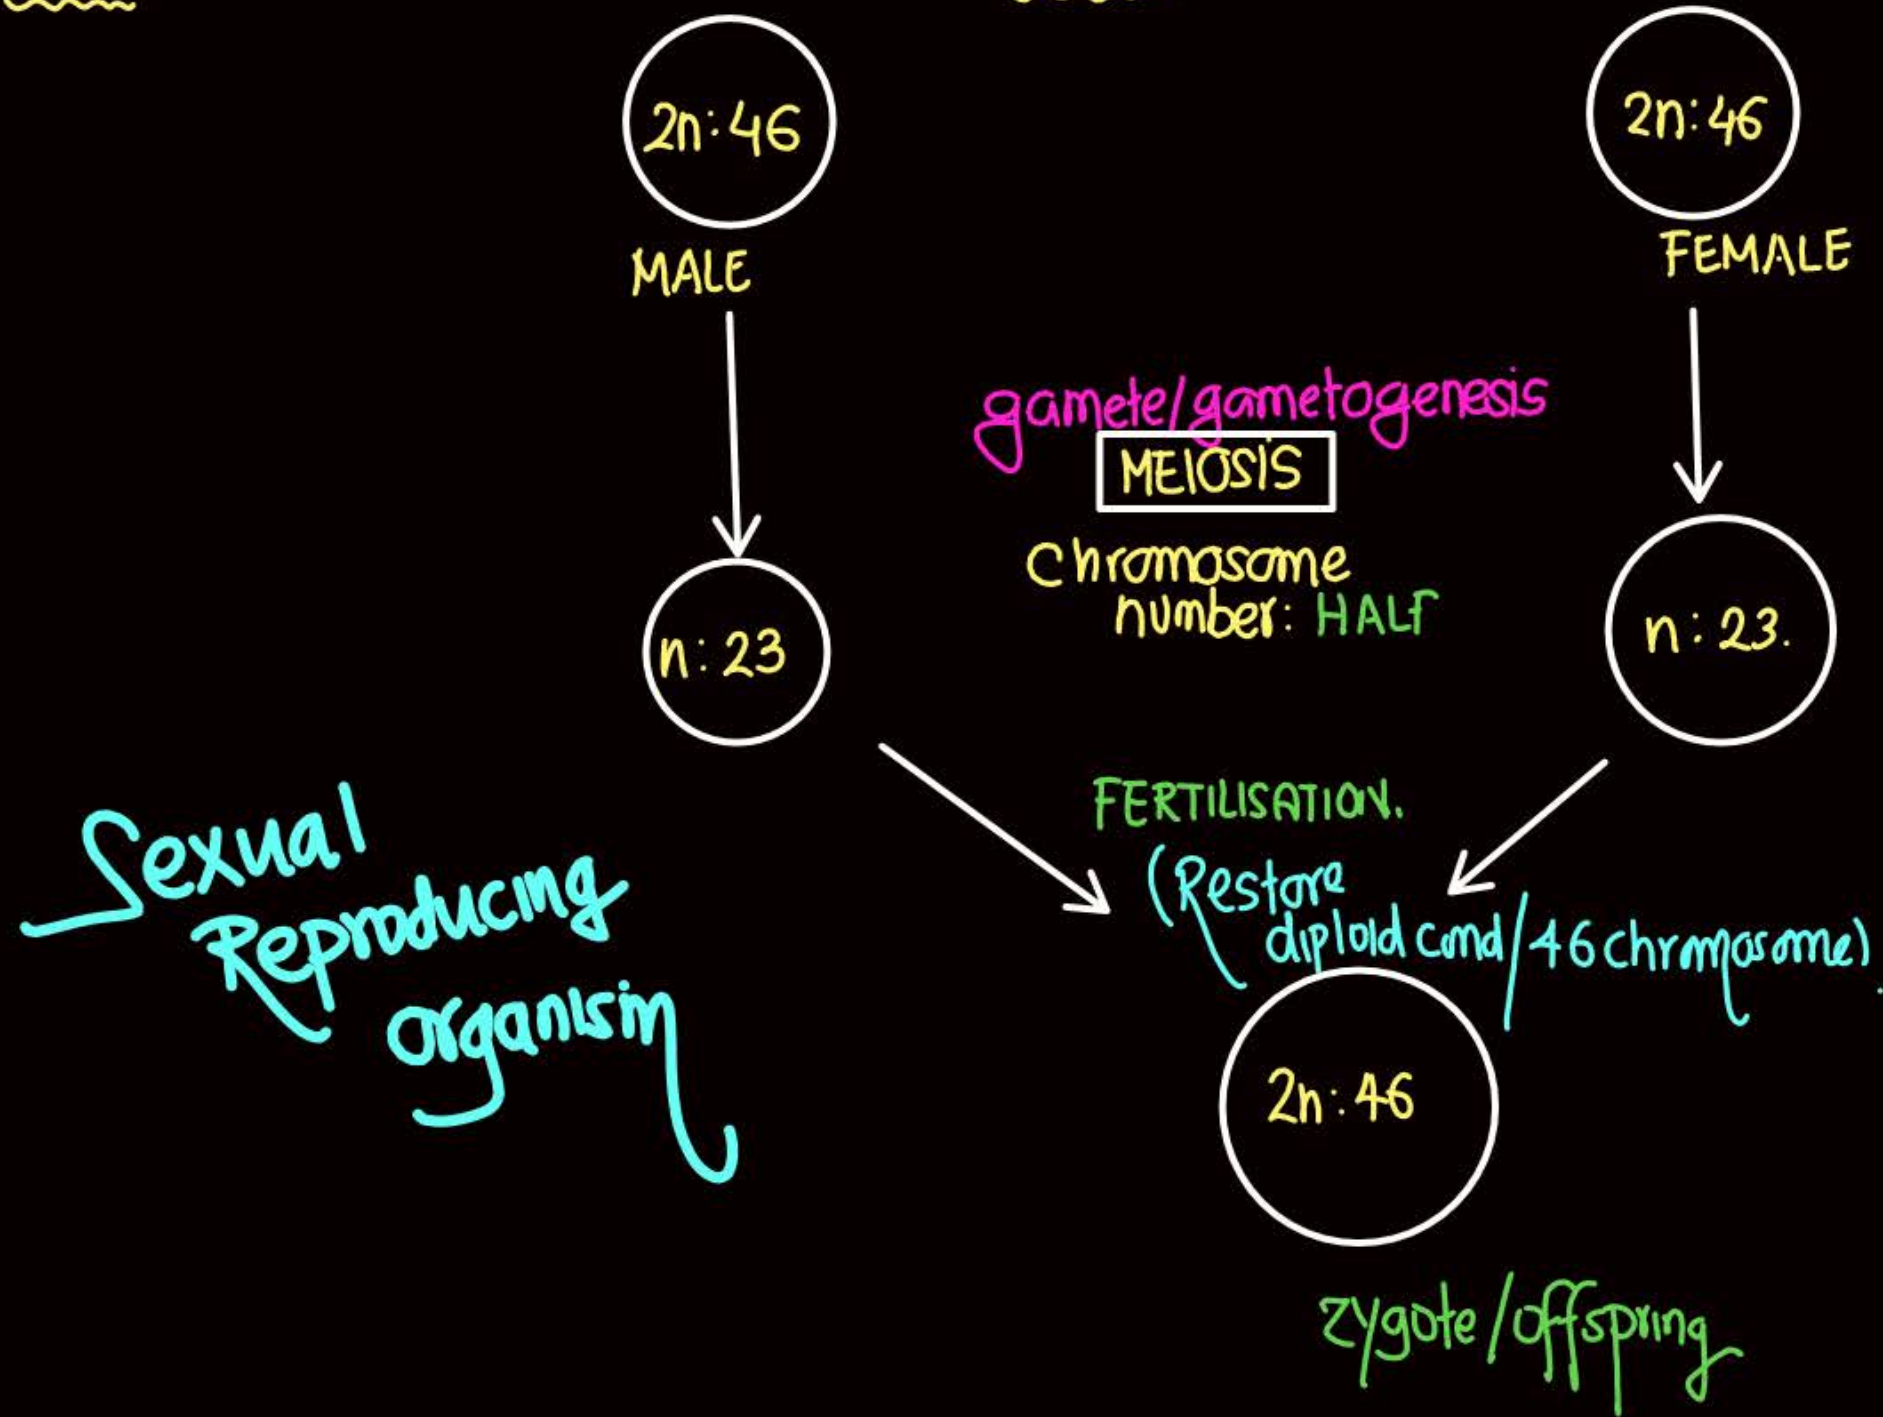 2n:46
2n:46
MALE
FEMALE
gamete/gametogenesis
MEIOSIS
Chromosome
number: HALF
n:23
n:23.
FERTILISATION.
(Restore
diploid cond/46 chromosome)
Sexual
Reproducing
organism
2n:46
zygote/offspring